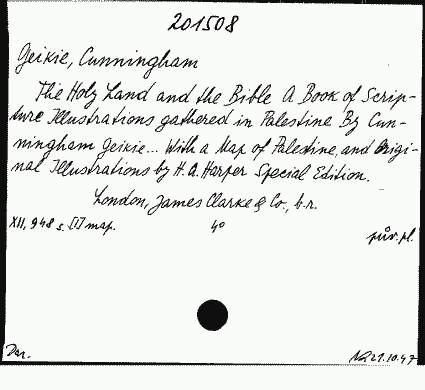 201508
Geikie, Cunningham
The Holy Land and the Bible A Book of Scrip-
ture Illustrations gathered in Palestine By Cun-
ningham Geikie... With a Map of Palestine, and Origi-
nal Illustrations by H. A. Harper Special Edition.
London, James Clarke & Co., b.r.
XII, 948 s. [1] map. 4° pův. pl.
Dar. 21.10.47